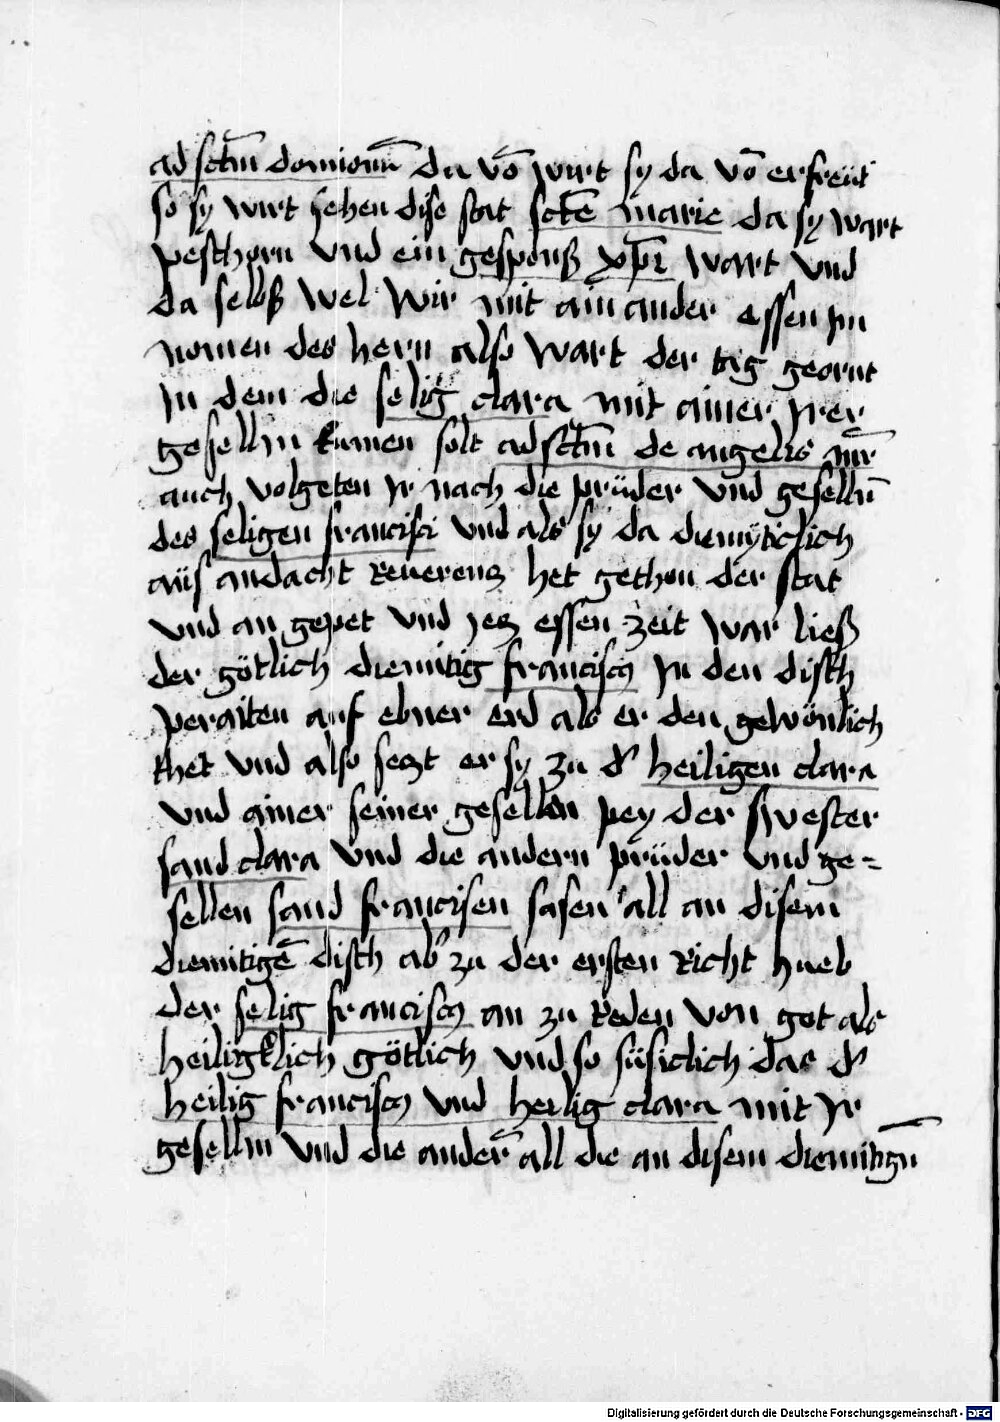 ad sctm̄ domionū da võ wirt sy da võ erfreüt
so sy wirt sehen dise stat sctē marie da sy wart
peschorn vnd ein gesponß xp̄i wart vnd
da selbß wel wir mit ain ander essen jm
nomen des hern also wart der tag geornt
jn dem die selig clara mit ainer jrer
gesellin kumen solt ad sctm̄ de angelis mr̄
auch volgeten jr nach die prüder vnd geselln̄
des seligen francisci vnd als sy da diemüticlich
aüs andacht reuerenz het gethon der stat
vnd an gepet vnd jez essen zeit war ließ
der götlich diemitig franciscꝰ jn den disch
peraiten auf ebner erd als er den gewönlich
thet vnd also sezt er sy zu dʼ heiligen clara
vnd ainer seiner gesellen pey der swester
sand clara vnd die andern prüder vnd ge=
sellen sand francisen sasen all an disem
diemitigē disch abʼ zu der ersten richt hueb
der selig franciscꝰ an zu reden von got als
heiligklich götlich vnd so süsiclich das dʼ
heilig franciscꝰ vnd heilig clara mit jr
gesellin vnd die anderñ all die an disem diemitign̄
Digitalisierung gefördert durch die Deutsche Forschungsgemeinschaft - DFG